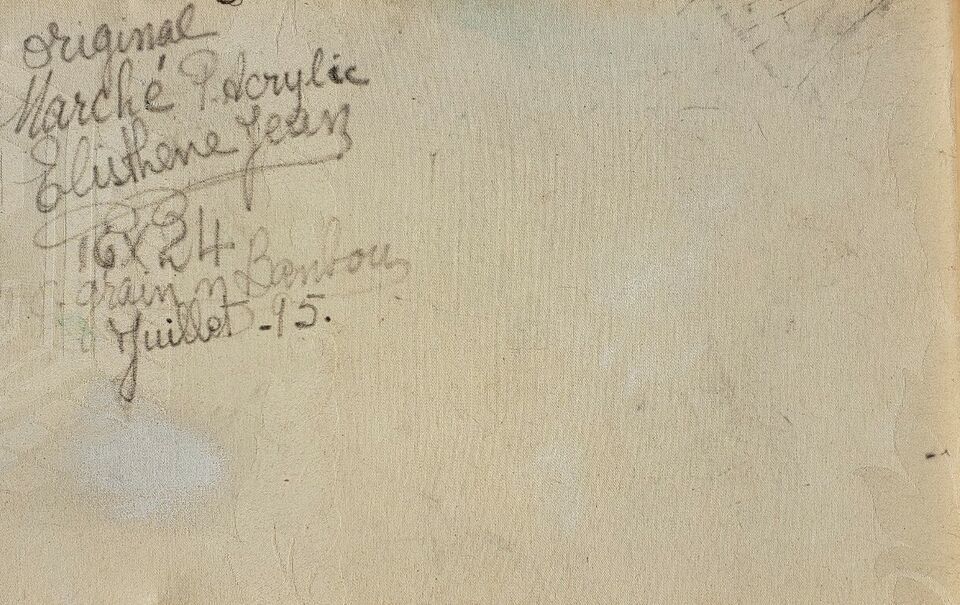 original
Marché P. Acrylic
Elisthene Jean
16x24
grain n Banbou
Juillet - 95.